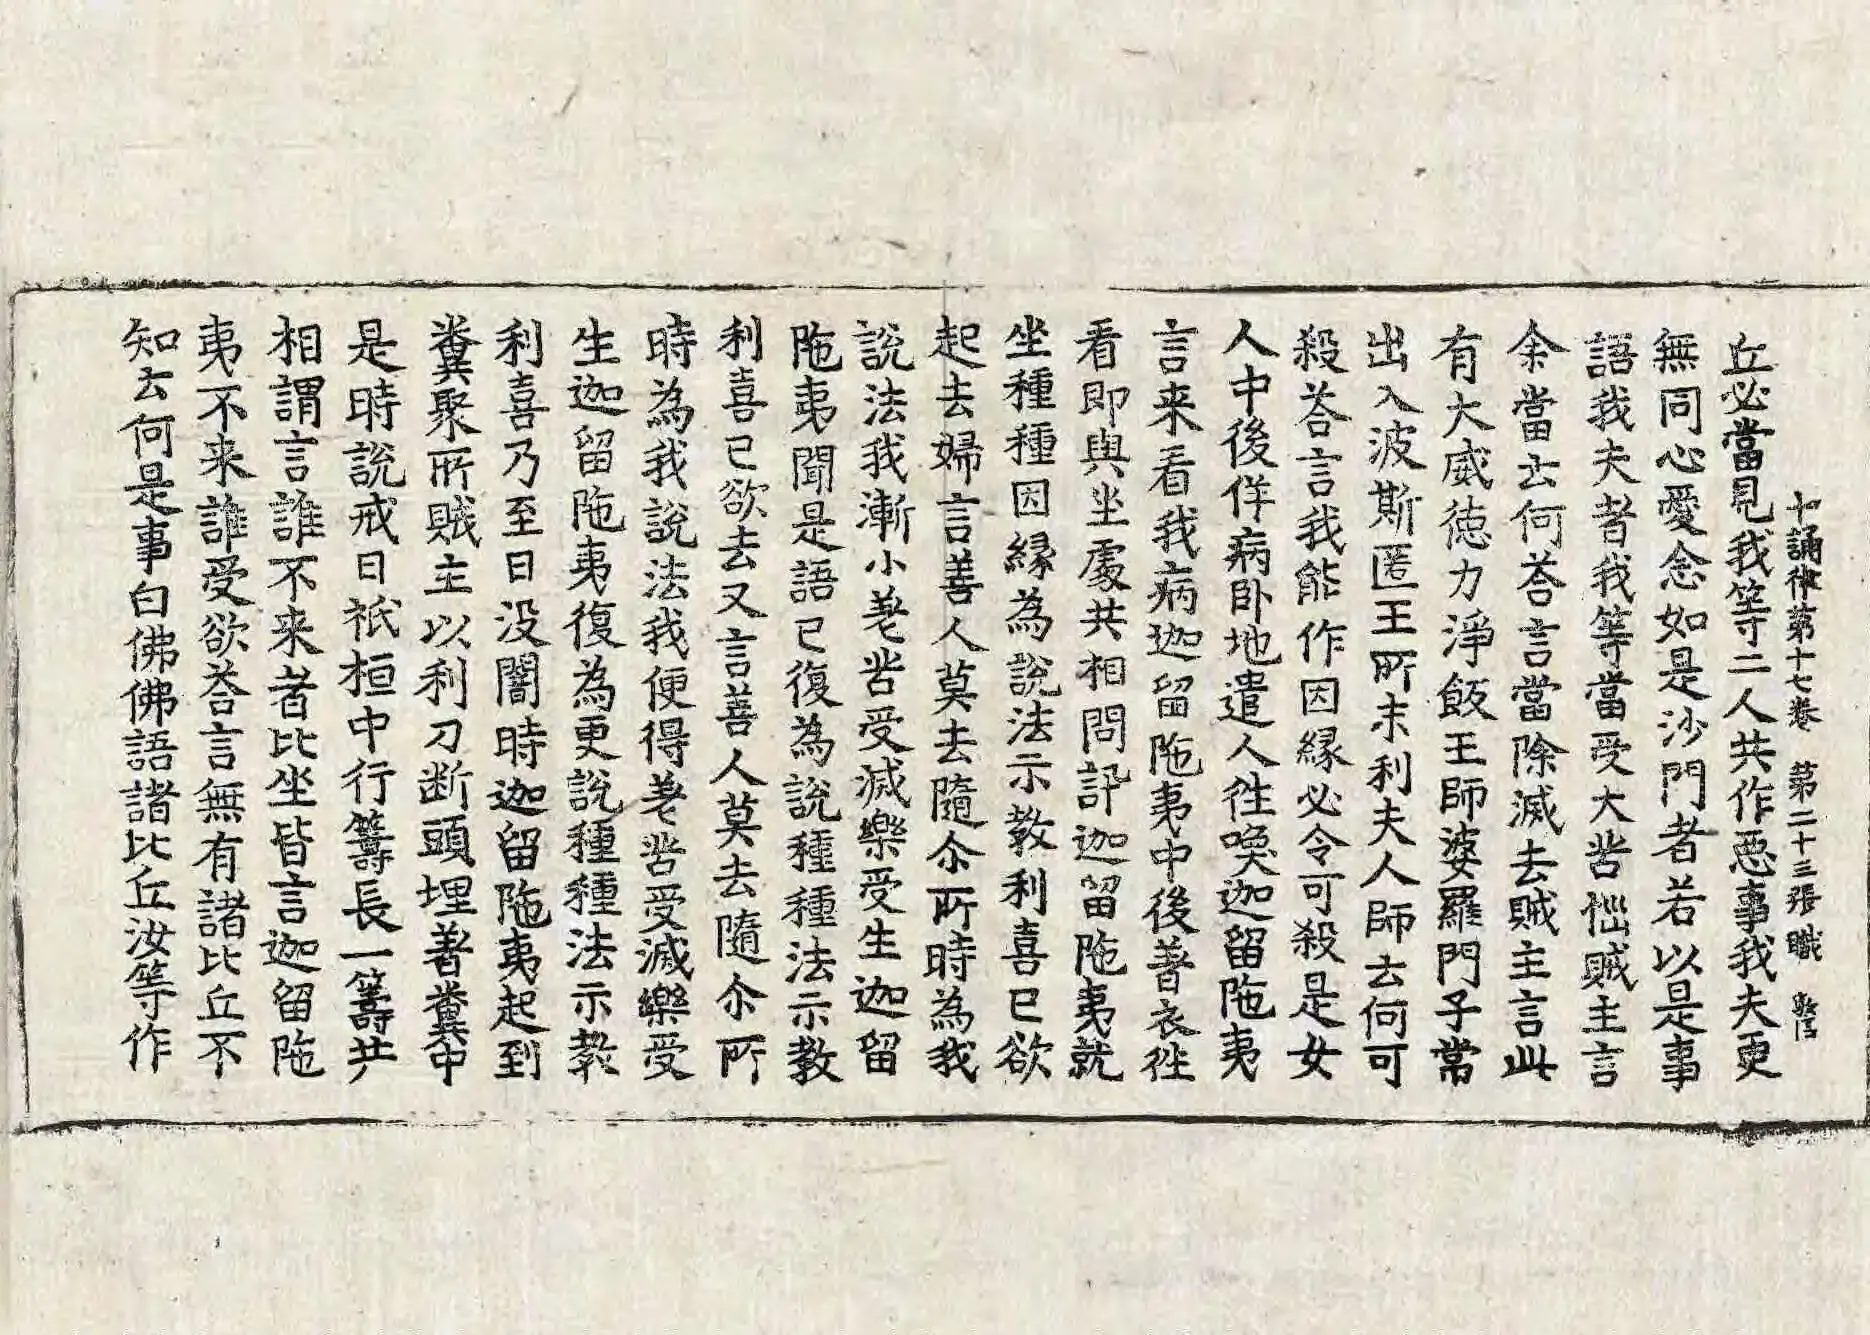 十誦律第十七卷 第二十三張 職
丘必當見我等二人共作惡事我夫更
無同心愛念如是沙門者若以是事
語我夫者我等當受大苦惱賊主言
尒當云何荅言當除滅去賊主言此
有大威德力淨飯王師婆羅門子常
出入波斯匿王所末利夫人師云何可
殺荅言我能作因緣必令可殺是女
人中後佯病卧地遣人往喚迦留陁夷
言来看我病迦留陁夷中後著衣往
看即與坐處共相問訊迦留陁夷就
坐種種因緣為說法示教利喜已欲
起去婦言善人莫去隨尒所時為我
說法我漸小差苦受滅樂受生迦留
陁夷聞是語已復為說種種法示教
利喜已欲去又言善人莫去隨尒所
時為我說法我便得差苦受滅樂受
生迦留陁夷復為更說種種法示教
利喜乃至日没闇時迦留陁夷起到
糞聚所賊主以利刀断頭埋著糞中
是時說戒日祇桓中行籌長一籌共
相謂言誰不来者比坐皆言迦留陁
夷不来誰受欲荅言無有諸比丘不
知云何是事白佛佛語諸比丘汝等作